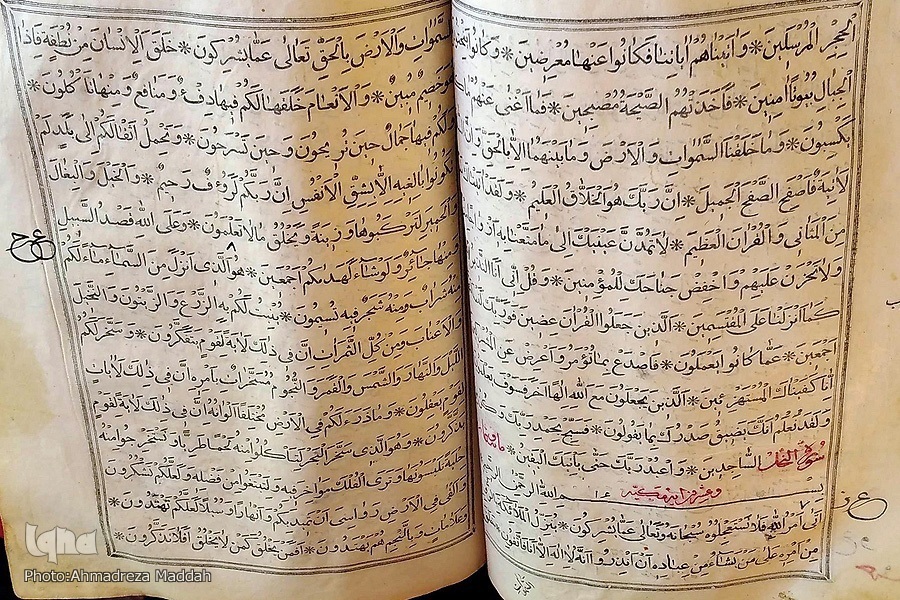 الحجر المرسلين * واتيناهم اياتنا فكانوا عنها معرضين * وكانوا
الجبال بيوتا امنين * فاخذتهم الصيحة مصبحين * فما اغنى عنهم ما
يكسبون * وما خلقنا السموات والارض وما بينهما الا بالحق وان
لاتية فاصفح الصفح الجميل * ان ربك هو الخلاق العليم * ولقد
من المثاني والقران العظيم * لا تمدن عينيك الى ما متعنا به ازواجا
ولا تحزن عليهم واخفض جناحك للمؤمنين * وقل اني انا النذير
كما انزلنا على المقتسمين * الذين جعلوا القران عضين فوربك
اجمعين * عما كانوا يعملون * فاصدع بما تؤمر واعرض عن
انا كفيناك المستهزئين * الذين يجعلون مع الله الها اخر فسوف
ولقد نعلم انك يضيق صدرك بما يقولون * فسبح بحمد ربك وكن
من الساجدين * واعبد ربك حتى ياتيك اليقين *
سورة النحل
بسم الله الرحمن الرحيم
اتى امر الله فلا تستعجلوه سبحانه وتعالى عما يشركون * ينزل الملائكة
من امره على من يشاء من عباده ان انذروا انه لا اله الا انا فاتقون
السموات والارض بالحق تعالى عما يشركون * خلق الانسان من نطفة فاذا
هو خصيم مبين * والانعام خلقها لكم فيها دفء ومنافع ومنها تاكلون *
ولكم فيها جمال حين تريحون وحين تسرحون * وتحمل اثقالكم الى بلد لم
تكونوا بالغيه الا بشق الانفس ان ربكم لرؤف رحيم * والخيل والبغال
والحمير لتركبوها وزينة ويخلق ما لا تعلمون * وعلى الله قصد السبيل
ومنها جائر ولو شاء لهديكم اجمعين * هو الذي انزل من السماء ماء لكم
منه شراب ومنه شجر فيه تسيمون * ينبت لكم به الزرع والزيتون والنخيل
والاعناب ومن كل الثمرات ان في ذلك لاية لقوم يتفكرون * وسخر لكم
الليل والنهار والشمس والقمر والنجوم مسخرات بامره ان في ذلك لايات
لقوم يعقلون * وما ذرء لكم في الارض مختلفا الوانه ان في ذلك لاية لقوم
يذكرون * وهو الذي سخر البحر لتاكلوا منه لحما طريا وتستخرجوا منه
حلية تلبسونها وترى الفلك مواخر فيه ولتبتغوا من فضله ولعلكم تشكرون *
والقى في الارض رواسي ان تميد بكم وانهارا وسبلا لعلكم تهتدون *
وعلامات وبالنجم هم يهتدون * افمن يخلق كمن لا يخلق افلا تذكرون *
iqna
Photo:Ahmadreza Maddah